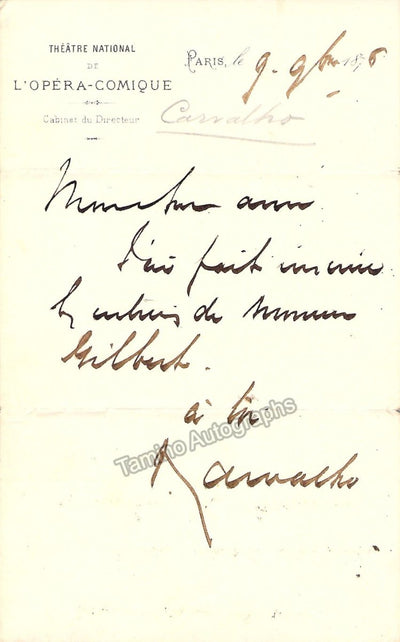 THÉÂTRE NATIONAL
DE
L'OPÉRA-COMIQUE
Cabinet du Directeur
PARIS, le 9. 9bre 1876
Carvalho
Mon cher ami
J'ai fait inscrire
les entrées de Monsieur
Gilbert.
à toi
Carvalho
Tamino Autographs